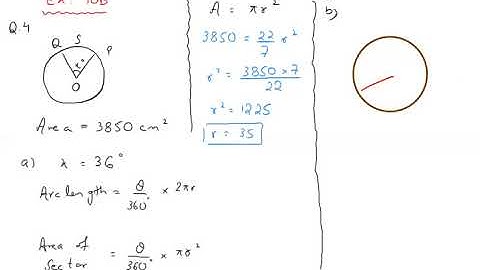 Ex. 10B
Q.4
Q S P
x°
O
Area = 3850 cm²
a) x = 36°
Arc length = θ/360° × 2πr
Area of Sector = θ/360° × πr²
A = πr²
3850 = 22/7 r²
r² = 3850 × 7/22
r² = 1225
r = 35
b)